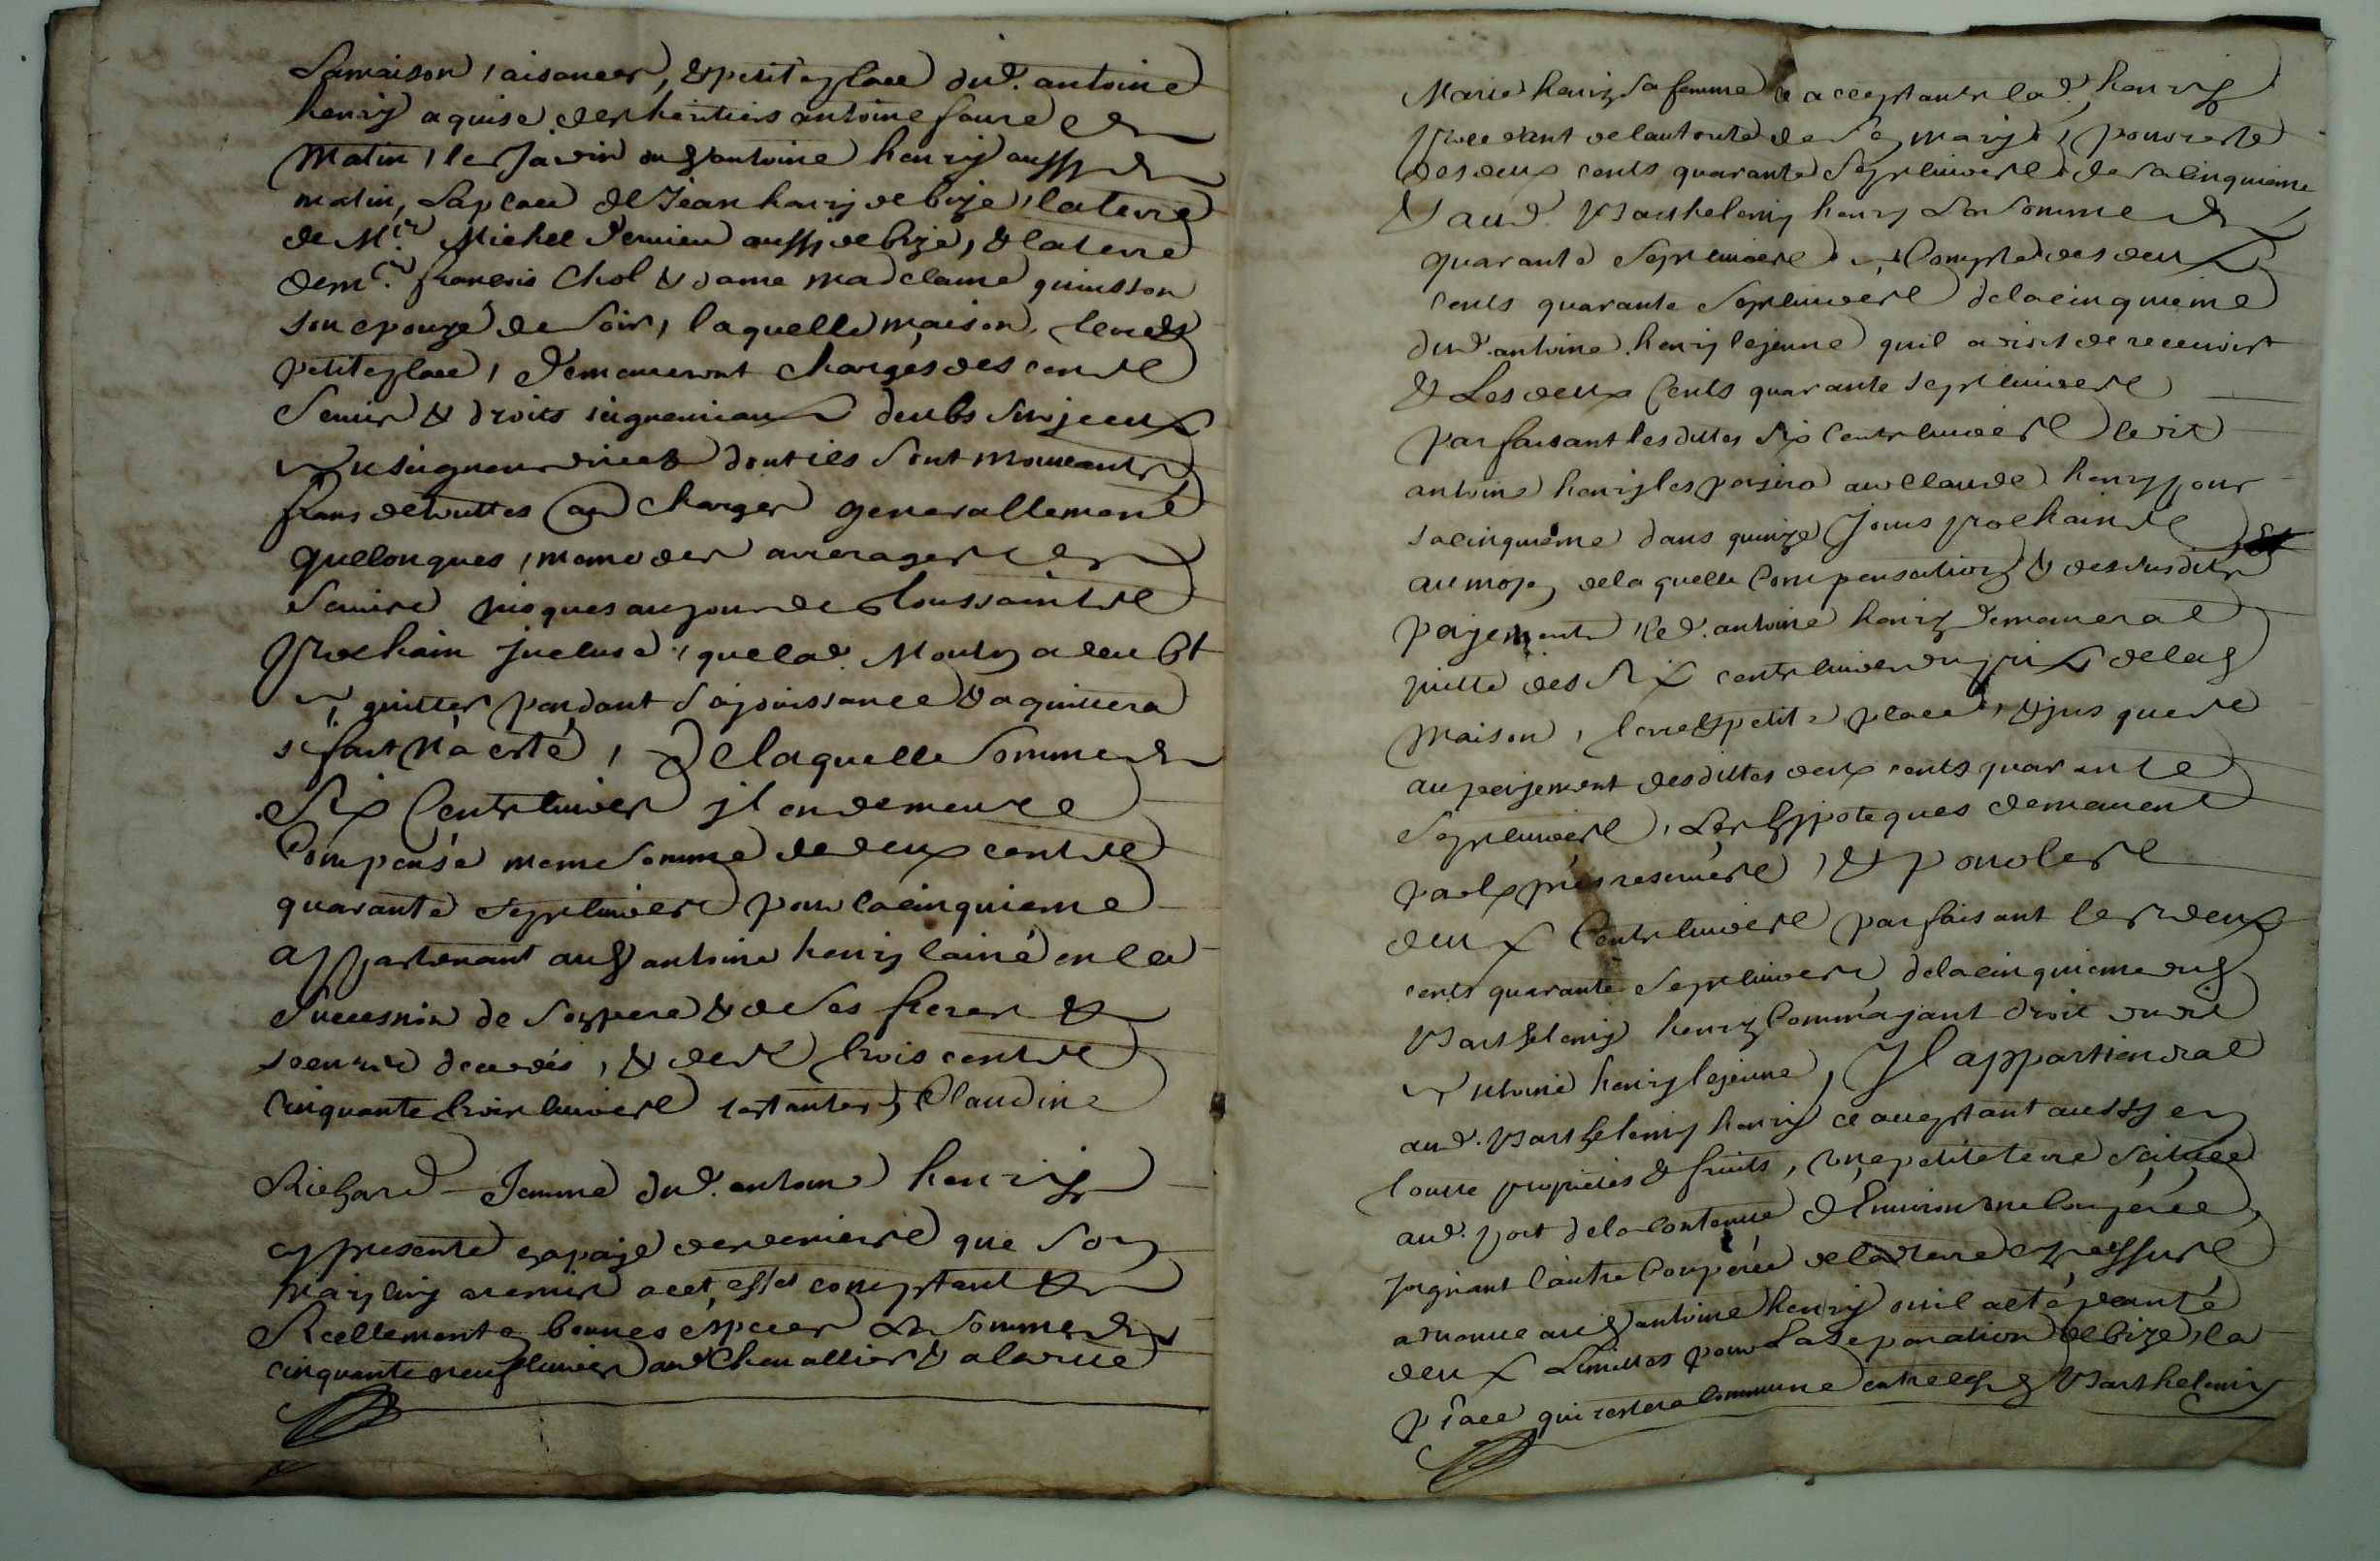 La maison, aisances, & petite place dud. antoine
henry aquise des heritiers antoine faure de
matin, le Jardin dud antoine henry aussy de
matin, La place de Jean henry de bize, la terre
de Mr. Michel aussy de bize, & la terre
de mr. francois Chol & dame madelaine quinsson
son epouze de soir, laquelle maison, terre &
petite place, demeureront chargés des cens
servis & droits seigneuriaux deubs sur jceux
au seigneur direct dont ils sont mouvants
francs de touttes charges generallement
quelconques, meme des arrerages de
servis jusques au jour de Toussaint
prochain jncluse, que lad. a deubt
aquitter pendant sa jouissance & aquittera
si fait n'a esté, De laquelle somme de
Six Cents livres jl en demeure
Compensé meme somme de deux cents
quarante sept livres pour la cinquieme
appartenant aud antoine henry lainé en la
succession de son pere & de ses freres &
soeurs decedés, & des trois cents
cinquante trois livres restantes, Claudine
Richard femme dud. antoine henry
cy presente en a payé des deniers que son
mary luy a remis a cet effet comptant &
Reellement en bonnes especes La somme de
cinquante neuf livres aud Chevallier & a lad
Marie henry sa femme ce acceptants lad. henry
procedant de lautorité de son mary, pour reste
des deux cents quarante sept livres de sa cinquieme
& aud. Barthelemy henry La somme de
quarante sept livres a Compte des deux
cents quarante sept livres de la cinquieme
dud. antoine henry le jeune quil a droit de recevoir
& Les deux Cents quarante sept livres
parfaisant les dittes six Cents livres led
antoine henry les payera aud Claude henry pour
sa cinquieme dans quinze Jours prochains
au moyen de laquelle Compensation & des susdits
payements, led. antoine henry demeurera
quitte des six cents livres du prix de la
maison, terre & petite place, & jusques
au payement desdittes deux cents quarante
sept livres, Les hypoteques demeurent
par exprés reservés, & pour les
deux Cents livres parfaisant les deux
cents quarante sept livres de la cinquieme dud
Barthelemy henry Comme ayant droit dud
antoine henry le jeune, Jl appartiendra
aud. Barthelemy henry ce acceptant aussy en
toutte proprietés & fruits, une petite terre scituée
aud. port de la Contenue d'Environ une Couperée,
joignant l'autre Couperée de la terre cy dessus
avenue aud antoine henry ou il a eté planté
deux Limittes pour La separation de bize, la
place qui restera commune entre led Barthelemy